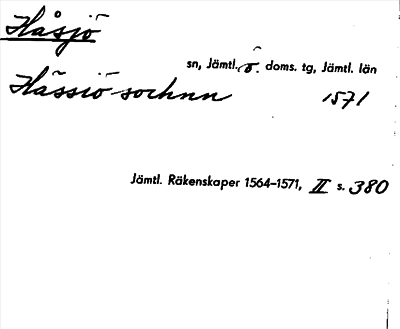 Håsjö
sn, Jämtl. ö. doms. tg, Jämtl. län
Hässiö sochnn 1571
Jämtl. Räkenskaper 1564–1571, II s. 380